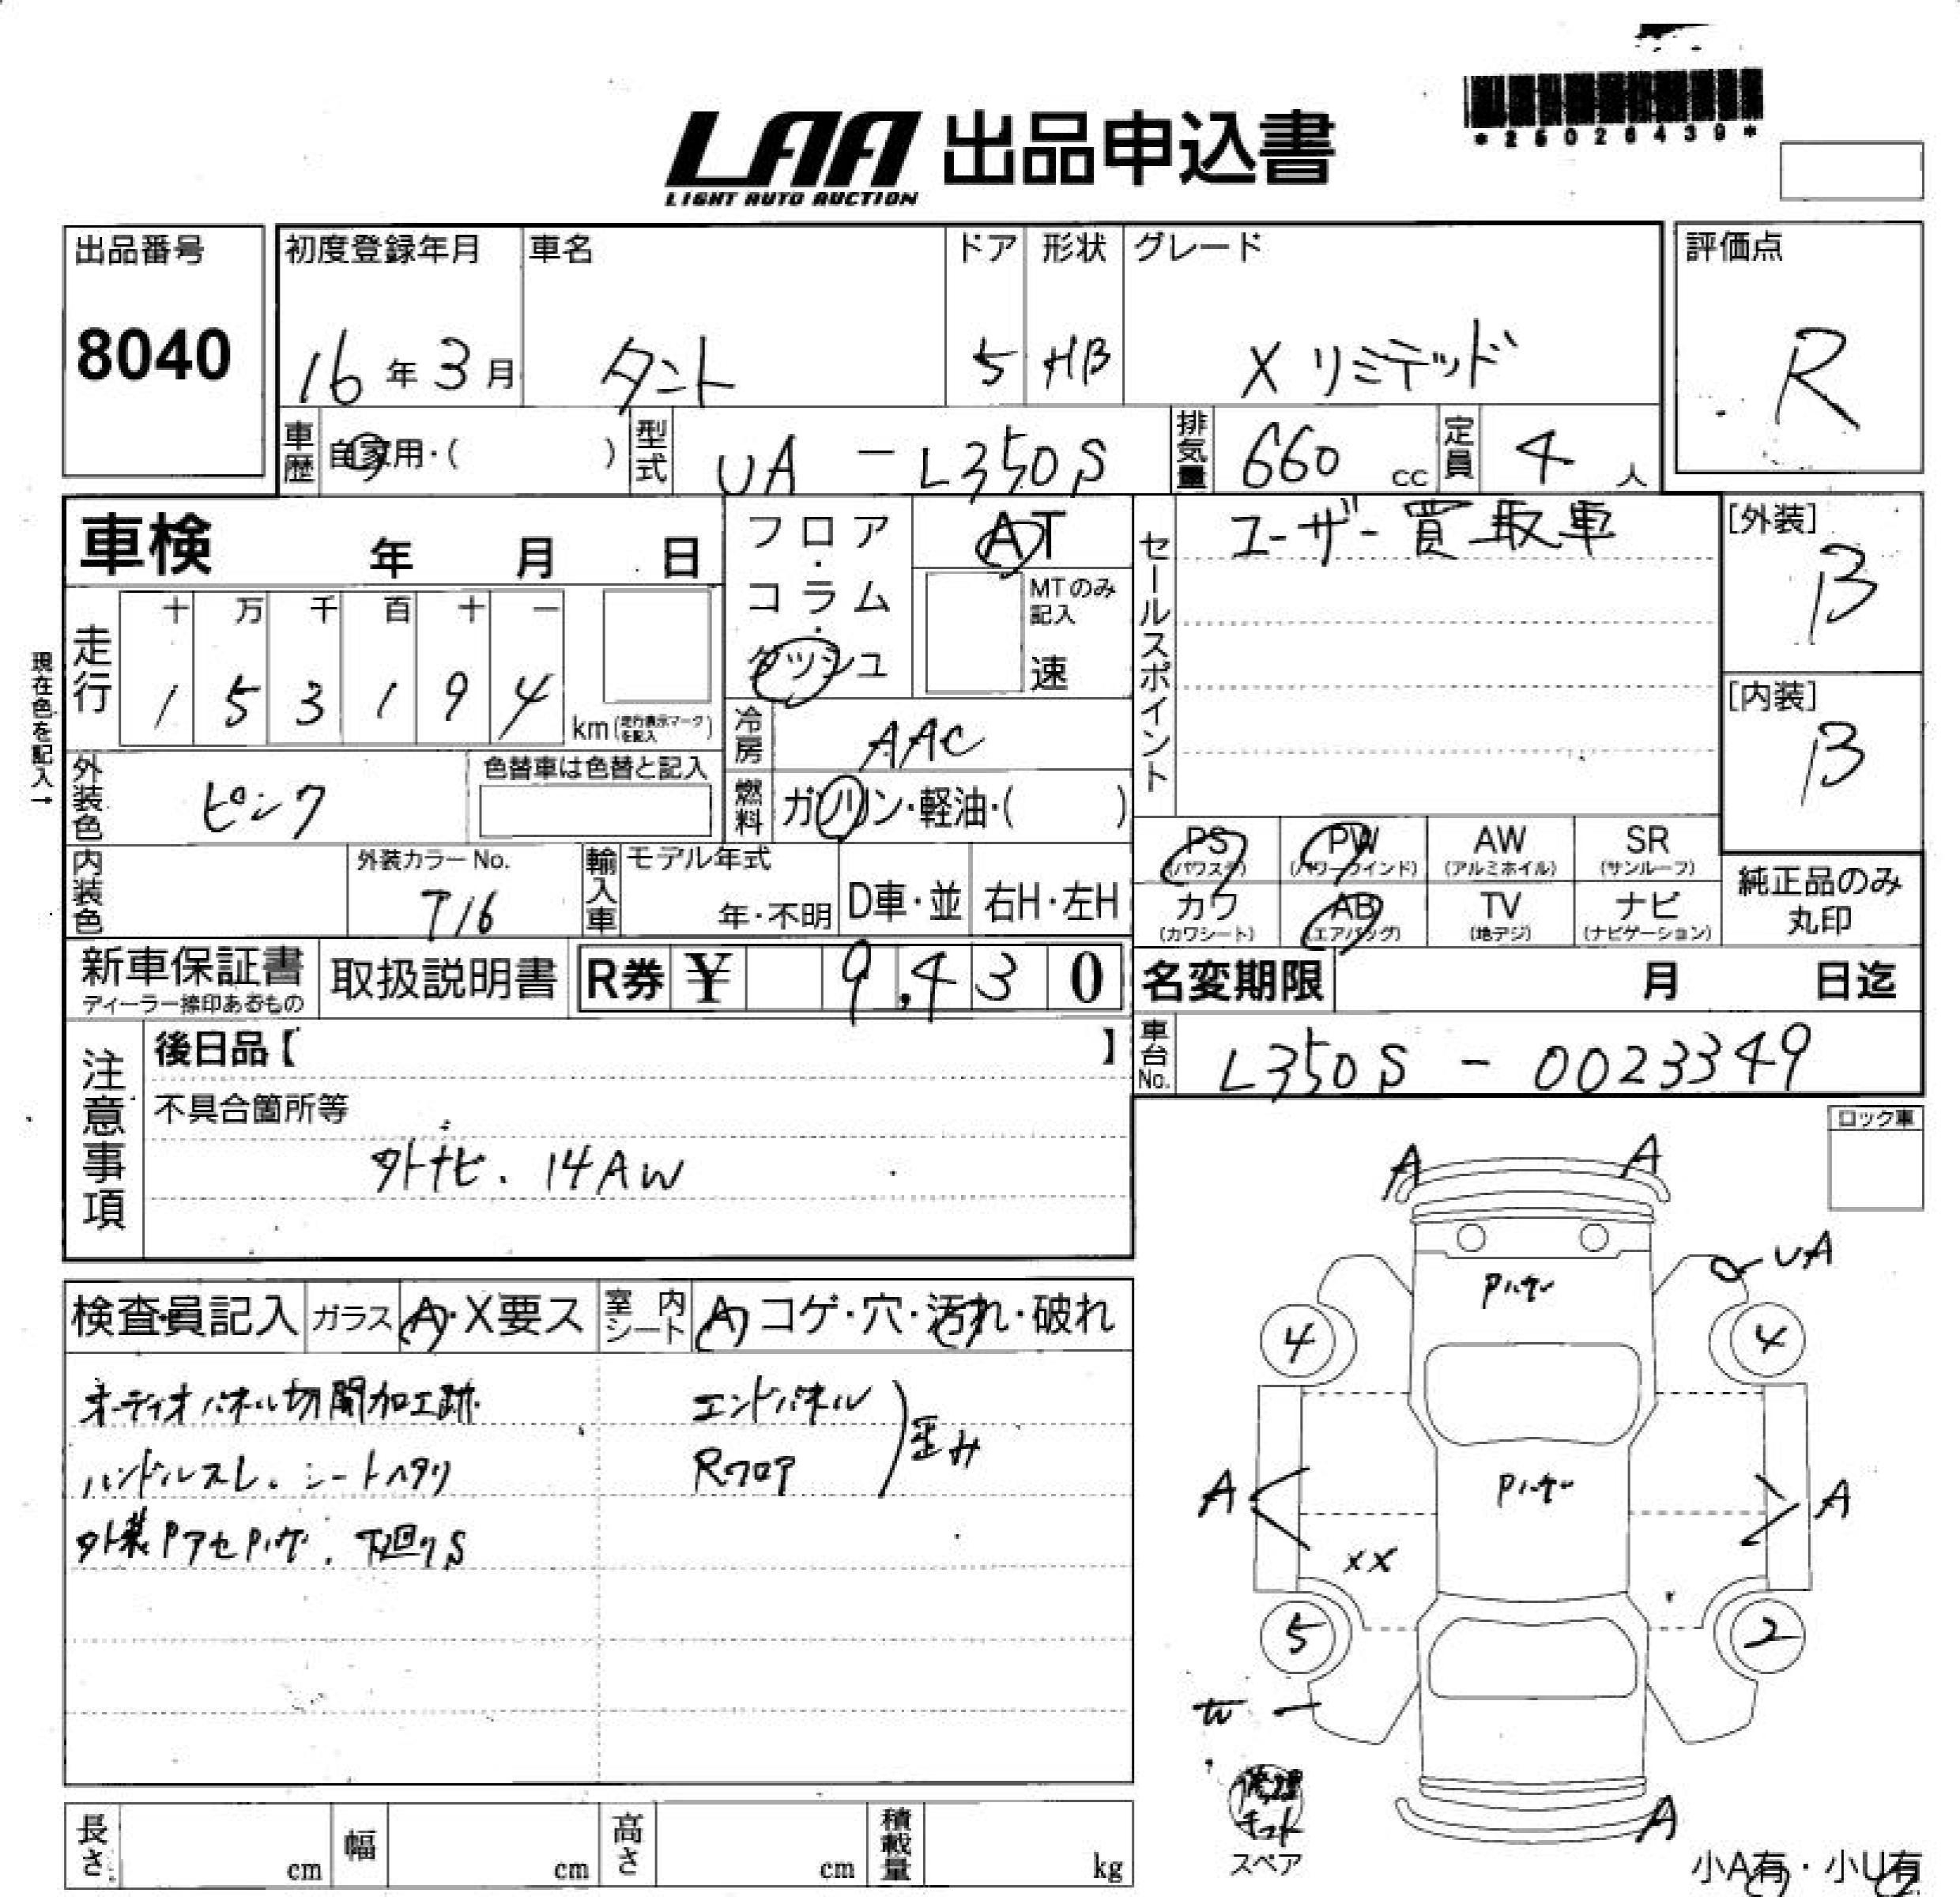 *25026439*
LAA 出品申込書
LIGHT AUTO AUCTION
出品番号
8040
初度登録年月
16年3月
車名
タント
ドア
5
形状
HB
グレード
X リミテッド
評価点
R
車歴
自家用・( )
型式
UA - L350S
排気量
660 cc
定員
4 人
車検 年 月 日
フロア・コラム・ダッシュ
AT
MTのみ記入
速
セールスポイント
ユーザー買取車
[外装]
B
[内装]
B
現在色を記入→
走行
十 万 千 百 十 一
1 5 3 1 9 4
km(走行表示マークを記入)
冷房
AAC
外装色
ピンク
色替車は色替と記入
燃料
ガソリン・軽油・( )
内装色
外装カラーNo.
T16
輸入車
モデル年式
年・不明
D車・並
右H・左H
PS (パワステ)
PW (パワーウインド)
AW (アルミホイル)
SR (サンルーフ)
カワ (カワシート)
AB (エアバッグ)
TV (地デジ)
ナビ (ナビゲーション)
純正品のみ丸印
新車保証書
ディーラー捺印あるもの
取扱説明書
R券 ¥ 9,430
名変期限 月 日迄
車台No.
L350S - 0023349
注意事項
後日品【 】
不具合箇所等
外ナビ. 14AW
ロック車
検査員記入
ガラス
A・X要ス
室内シート
A・コゲ・穴・汚れ・破れ
オーディオパネル切開加工跡
ハンドルスレ. シートヘタリ
外装Pアセ Pハゲ. 下廻りS
エンドパネル
Rフロア
歪み
A A
UA
Pハゲ
4 4
A A
Pハゲ
XX
5 2
W
A
修理キット
スペア
小A有・小U有
長さ cm
幅 cm
高さ cm
積載量 kg